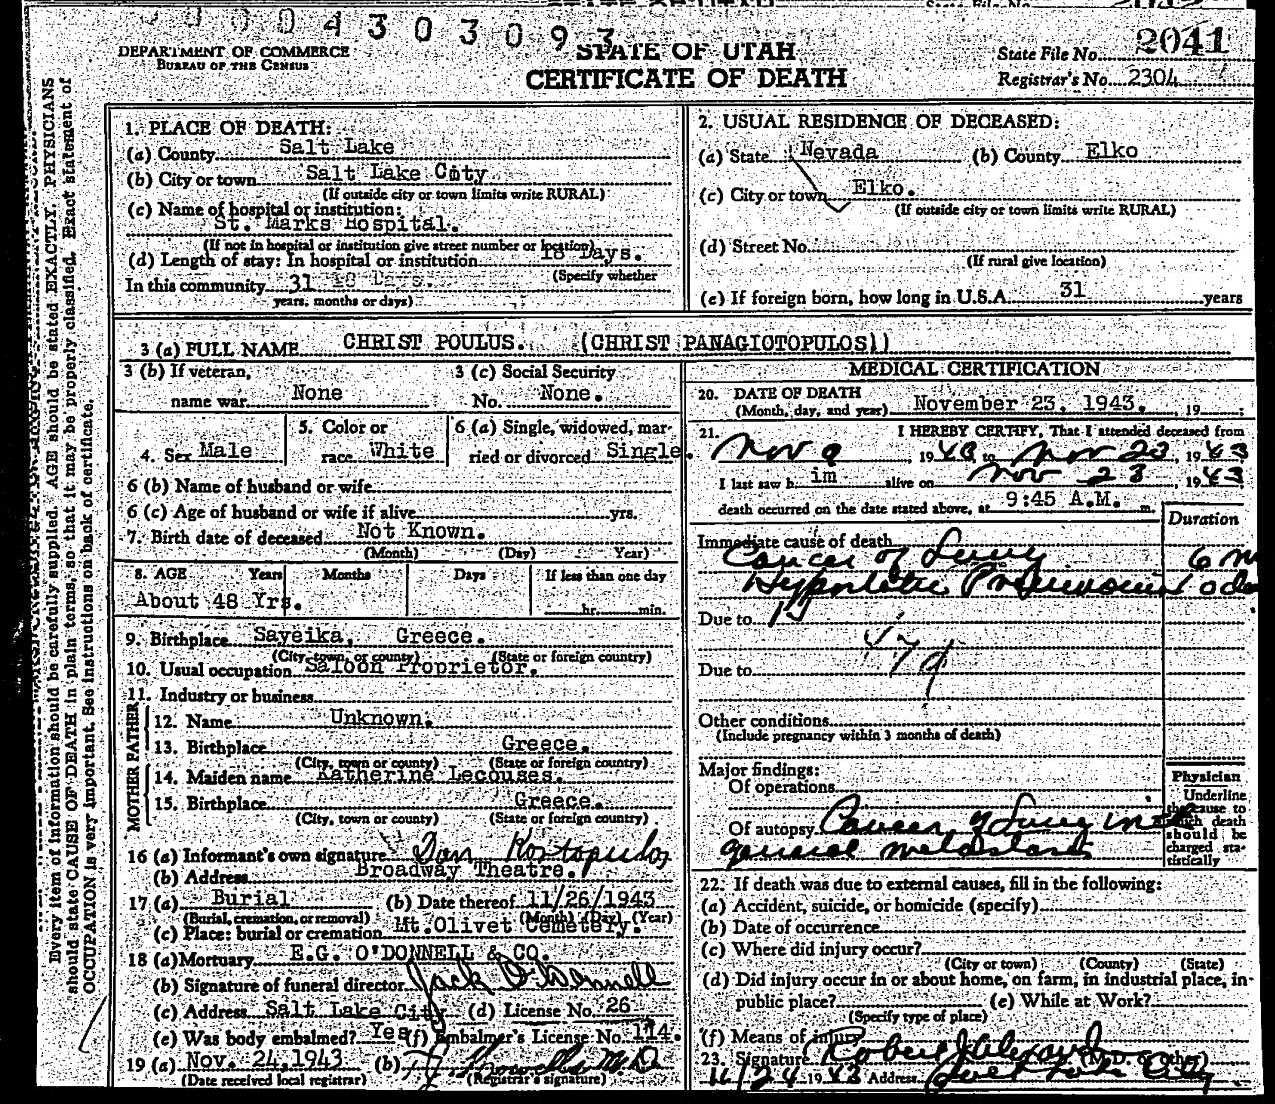 0 0 0 4 3 0 3 0 9 3
DEPARTMENT OF COMMERCE
BUREAU OF THE CENSUS
STATE OF UTAH
CERTIFICATE OF DEATH
State File No. 2041
Registrar's No. 2304
Every item of information should be carefully supplied. AGE should be stated EXACTLY. PHYSICIANS
should state CAUSE OF DEATH in plain terms, so that it may be properly classified. Exact statement of
OCCUPATION is very important. See instructions on back of certificate.
1. PLACE OF DEATH:
(a) County Salt Lake
(b) City or town Salt Lake City
(If outside city or town limits write RURAL)
(c) Name of hospital or institution:
St. Marks Hospital.
(If not in hospital or institution give street number or location)
(d) Length of stay: In hospital or institution 18 Days.
(Specify whether
In this community 31 18 Days.
years, months or days)
2. USUAL RESIDENCE OF DECEASED:
(a) State Nevada (b) County Elko
(c) City or town Elko.
(If outside city or town limits write RURAL)
(d) Street No.
(If rural give location)
(e) If foreign born, how long in U.S.A. 31 years
3 (a) FULL NAME CHRIST POULUS. (CHRIST PANAGIOTOPULOS))
3 (b) If veteran, name war None
3 (c) Social Security No. None.
4. Sex Male
5. Color or race White
6 (a) Single, widowed, married or divorced Single.
6 (b) Name of husband or wife
6 (c) Age of husband or wife if alive yrs.
7. Birth date of deceased Not Known.
(Month) (Day) Year)
8. AGE Years Months Days If less than one day
About 48 Yrs. hr. min.
9. Birthplace Sayeika, Greece.
(City, town, or county) (State or foreign country)
10. Usual occupation Saloon Proprietor.
11. Industry or business
FATHER
12. Name Unknown.
13. Birthplace Greece.
(City, town or county) (State or foreign country)
MOTHER
14. Maiden name Katherine Lecouses.
15. Birthplace Greece.
(City, town or county) (State or foreign country)
16 (a) Informant's own signature Dan Kostopulos
(b) Address Broadway Theatre.
17 (a) Burial (b) Date thereof 11/26/1943
(Burial, cremation, or removal) (Month) (Day) (Year)
(c) Place: burial or cremation Mt. Olivet Cemetery.
18 (a) Mortuary E.G. O'DONNELL & CO.
(b) Signature of funeral director Jack O'Donnell
(c) Address Salt Lake City (d) License No. 26
(e) Was body embalmed? Yes (f) Embalmer's License No. 114.
19 (a) Nov. 24, 1943 (b) M.D.
(Date received local registrar) (Registrar's signature)
MEDICAL CERTIFICATION
20. DATE OF DEATH
(Month, day, and year) November 23, 1943. , 19 ;
21. I HEREBY CERTIFY, That I attended deceased from
Nov 9, 1943, to Nov 23, 1943
I last saw h im alive on Nov 23, 1943
death occurred on the date stated above, at 9:45 A.M. m.
Duration
Immediate cause of death
Cancer of Lung 6 m
Hypostatic Pneumonia 10 da
Due to
47d
Due to
Other conditions
(Include pregnancy within 3 months of death)
Major findings:
Of operations
Of autopsy Cancer of Lung with
general metastasis
Physician
Underline the cause to which death should be charged statistically
22. If death was due to external causes, fill in the following:
(a) Accident, suicide, or homicide (specify)
(b) Date of occurrence
(c) Where did injury occur?
(City or town) (County) (State)
(d) Did injury occur in or about home, on farm, in industrial place, in
public place? (e) While at Work?
(Specify type of place)
(f) Means of injury
23. Signature Robert J Alexander (M.D. or other)
11/24 1943 Address Salt Lake City